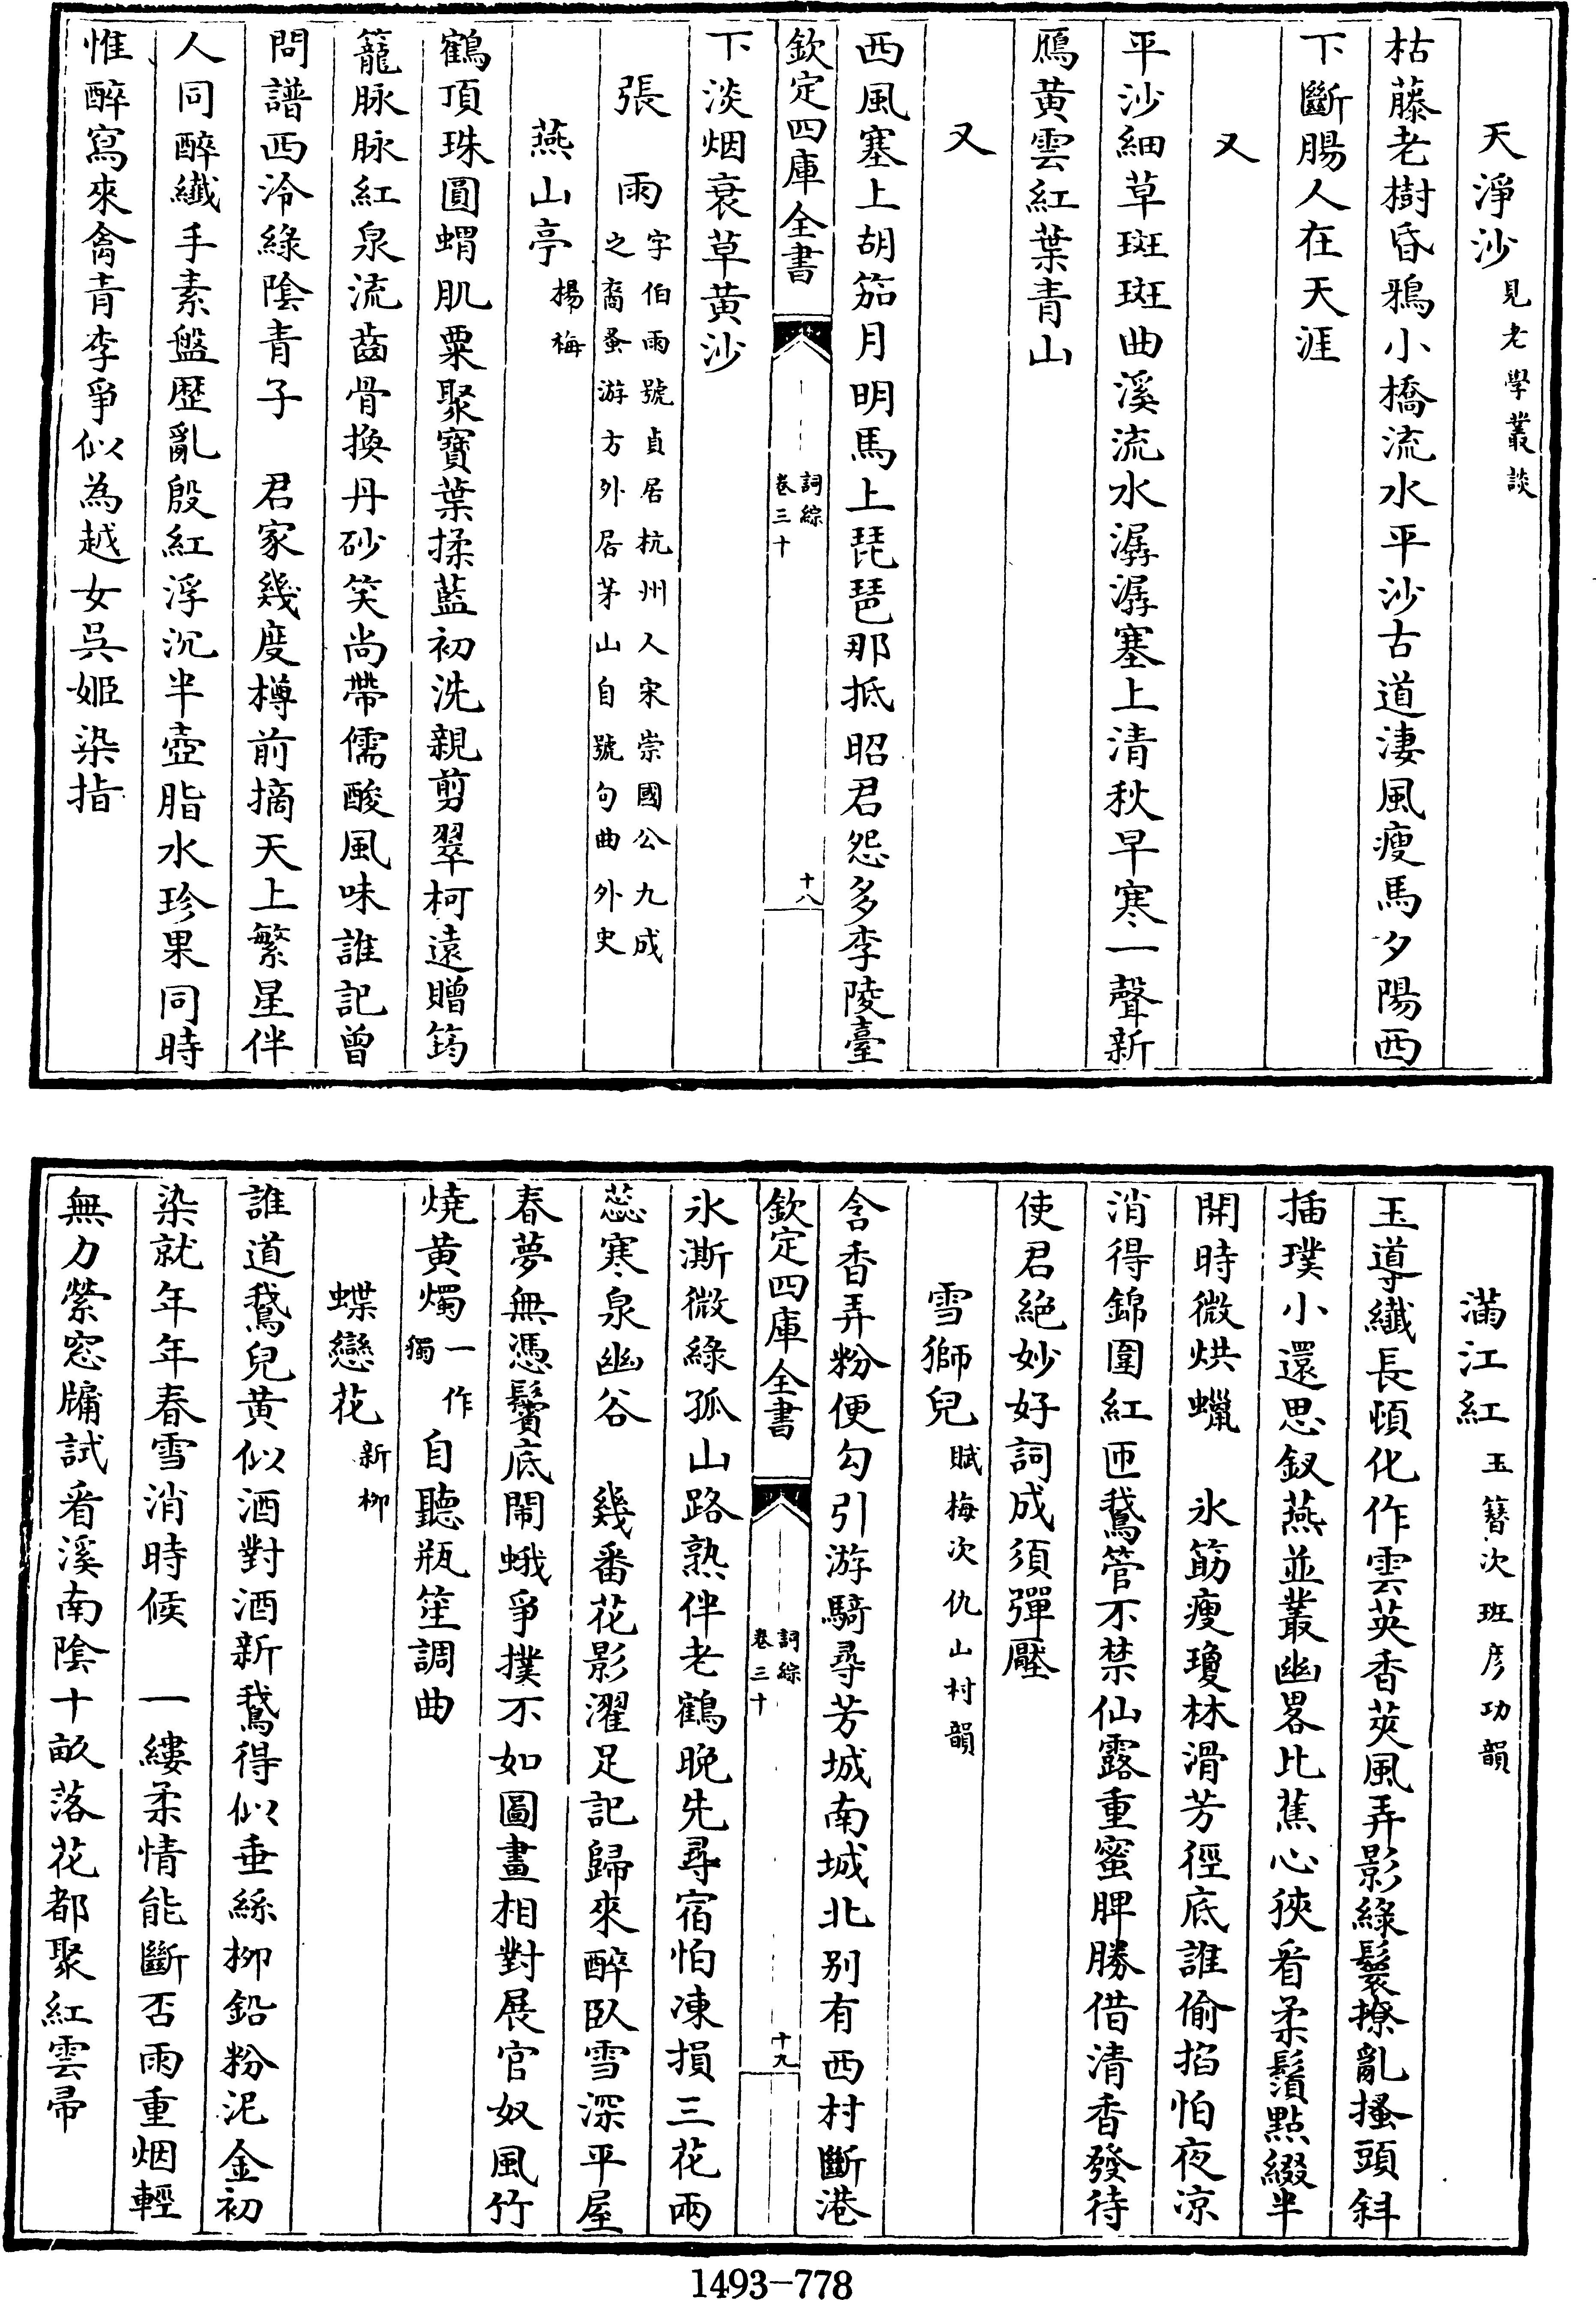 天淨沙見老學叢談
枯藤老樹昏鴉小橋流水平沙古道淒風瘦馬夕陽西
下斷腸人在天涯
又
平沙細草斑斑曲溪流水潺潺塞上清秋早寒一聲新
鴈黃雲紅葉青山
又
西風塞上胡笳月明馬上琵琶那抵昭君怨多李陵臺
欽定四庫全書
詞綜
卷三十
十八
下淡烟衰草黃沙
張雨字伯雨號貞居杭州人宋崇國公九成
之裔蚤游方外居茅山自號句曲外史
燕山亭楊梅
鶴頂珠圓蝟肌粟聚寶葉揉藍初洗親剪翠柯遠贈筠
籠脉脉紅泉流齒骨換丹砂笑尚帶儒酸風味誰記曾
問譜西泠綠陰青子　君家幾度樽前摘天上繁星伴
人同醉纖手素盤歷亂殷紅浮沉半壺脂水珍果同時
惟醉寫來禽青李爭似為越女吳姬染指
滿江紅玉簪次班彥功韻
玉導纖長頓化作雲英香莢風弄影綠鬟撩亂搔頭斜
插璞小還思釵燕並叢幽畧比蕉心狹看柔鬚點綴半
開時微烘蠟　氷筯瘦瓊林滑芳徑底誰偷掐怕夜凉
消得錦圍紅匝鵞管不禁仙露重蜜脾勝借清香發待
使君絕妙好詞成須彈壓
雪獅兒賦梅次仇山村韻
含香弄粉便勾引游騎尋芳城南城北別有西村斷港
欽定四庫全書
詞綜
卷三十
十九
氷澌微綠孤山路熟伴老鶴晚先尋宿怕凍損三花兩
蕊寒泉幽谷　幾番花影濯足記歸來醉臥雪深平屋
春夢無憑鬢底鬧蛾爭撲不如圖畫相對展官奴風竹
燒黃燭一作獨自聽瓶笙調曲
蝶戀花新柳
誰道鵞兒黃似酒對酒新鵞得似垂絲柳鉛粉泥金初
染就年年春雪消時候　一縷柔情能斷否雨重烟輕
無力縈窓牖試看溪南陰十畝落花都聚紅雲帚
1493-778